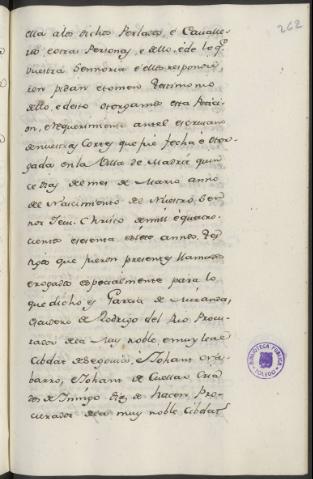 262
ella a los dichos Perlados, e Cavalle-
ros e otras Personas, e dello, e de lo qe
vuestra Señoria e ellos respondie-
ren pidan e tomen Testimonio
dello, e desto otorgamos esta Peticí-
on, e Requerimiento ante el escrivano
de nuestras Cortes que fué fecha e otor-
gada en la Villa de Madrid quin-
ce dias del mes de Marzo anno
del Nacimiento de Nuestro Se-
ñor Jesu Christo de mill e quatro-
cientos e setenta e siete annos. Tes-
tigos que fueron presentes llamados
e rogados especialmente para lo
que dicho es Garcia de Miranda,
Criado de Rodrigo del Rio Procu-
rador de la Muy noble, e muy leal
Cibdat de Segovia, e Johan
barro, e Johan de Cuellar Cria-
dos de Innigo Diaz de Pro-
curador de la muy noble Cibdat
BIBLIOTECA PUBLICA
TOLEDO